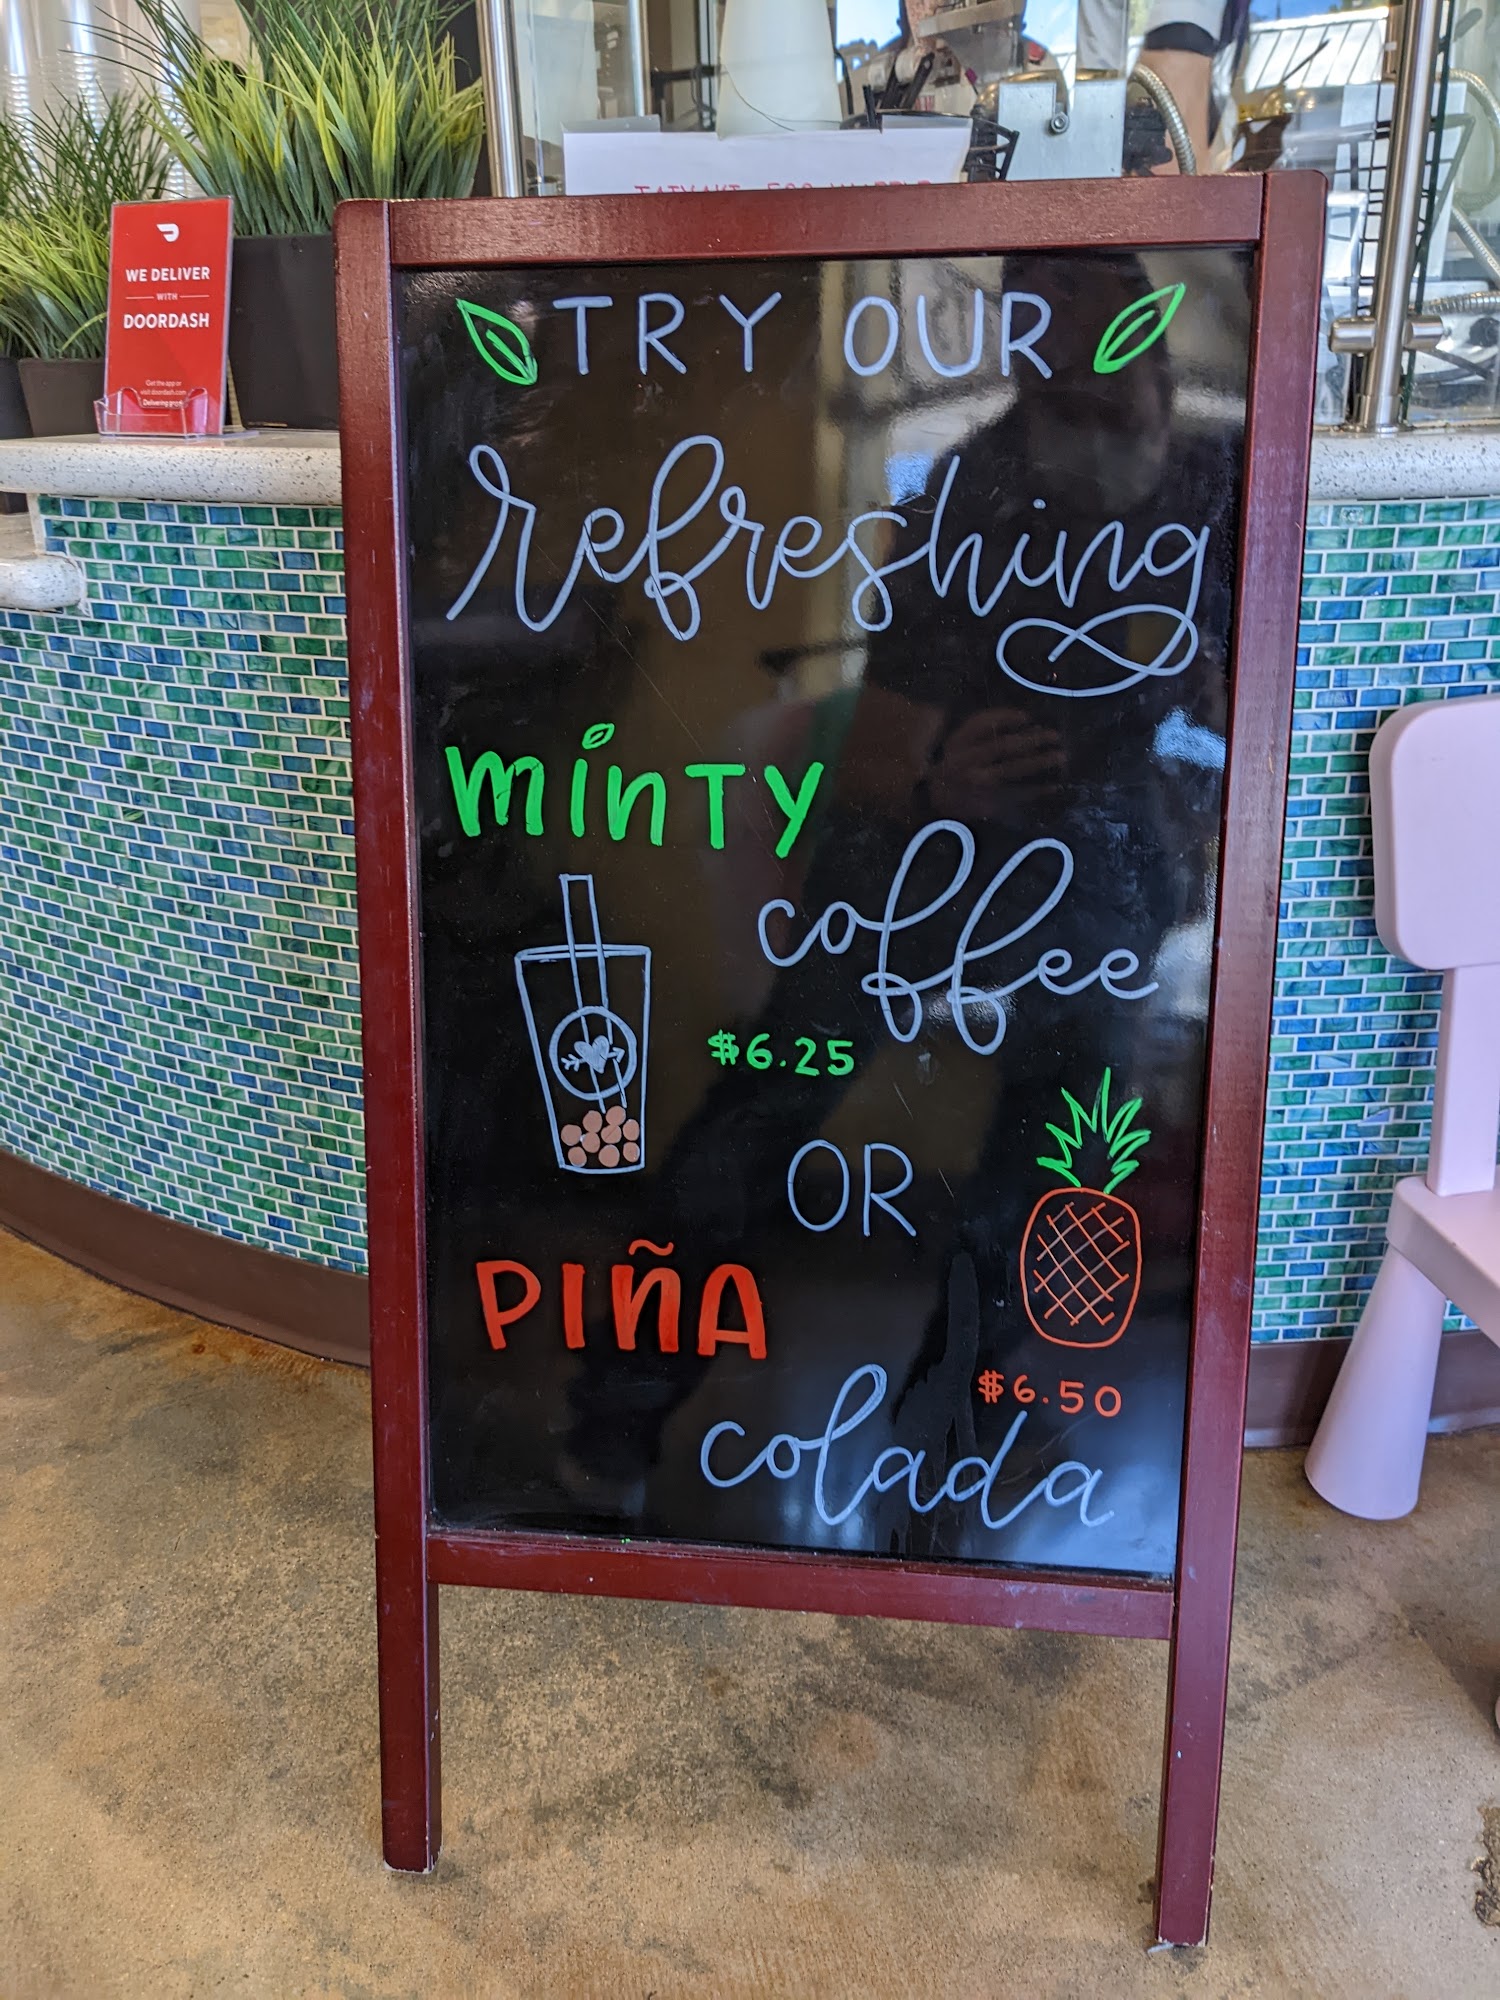 TRY OUR
refreshing
minty
coffee
$6.25
OR
PIÑA
$6.50
colada
WE DELIVER
WITH
DOORDASH
Get the app or
visit doordash.com